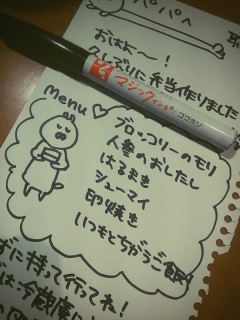 パパへ
おはよ〜!
久しぶりに弁当作りました
マジックインキ
menu♡
ブロッコリーのモリ
人参のおひたし
はるまき
シューマイ
卵焼き
いつもとちがうご飯
ずに持って行ってた!
は冷蔵庫に